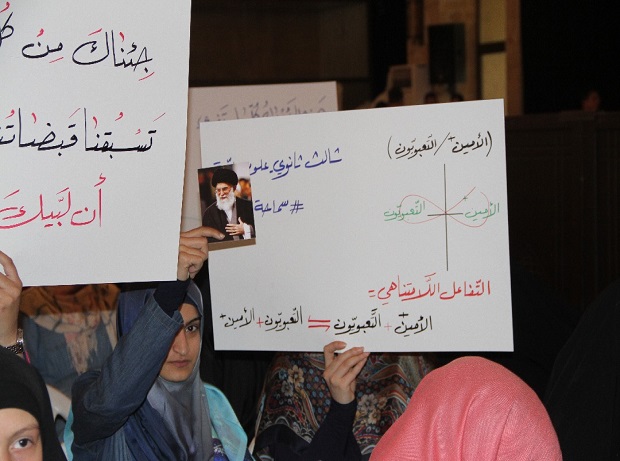 جِئناكَ مِن
تَسبُقنا قَبضاتُنا
أن لبَّيكَ
(الأمين⁺/التّعبويّون)
ثالث ثانوي علوم
#سماحة
التّعبويّون الأمين⁺
التّفاعل اللّامتناهي:-
الأمين⁺ + التّعبويّون ⇌ التّعبويّون + الأمين⁺